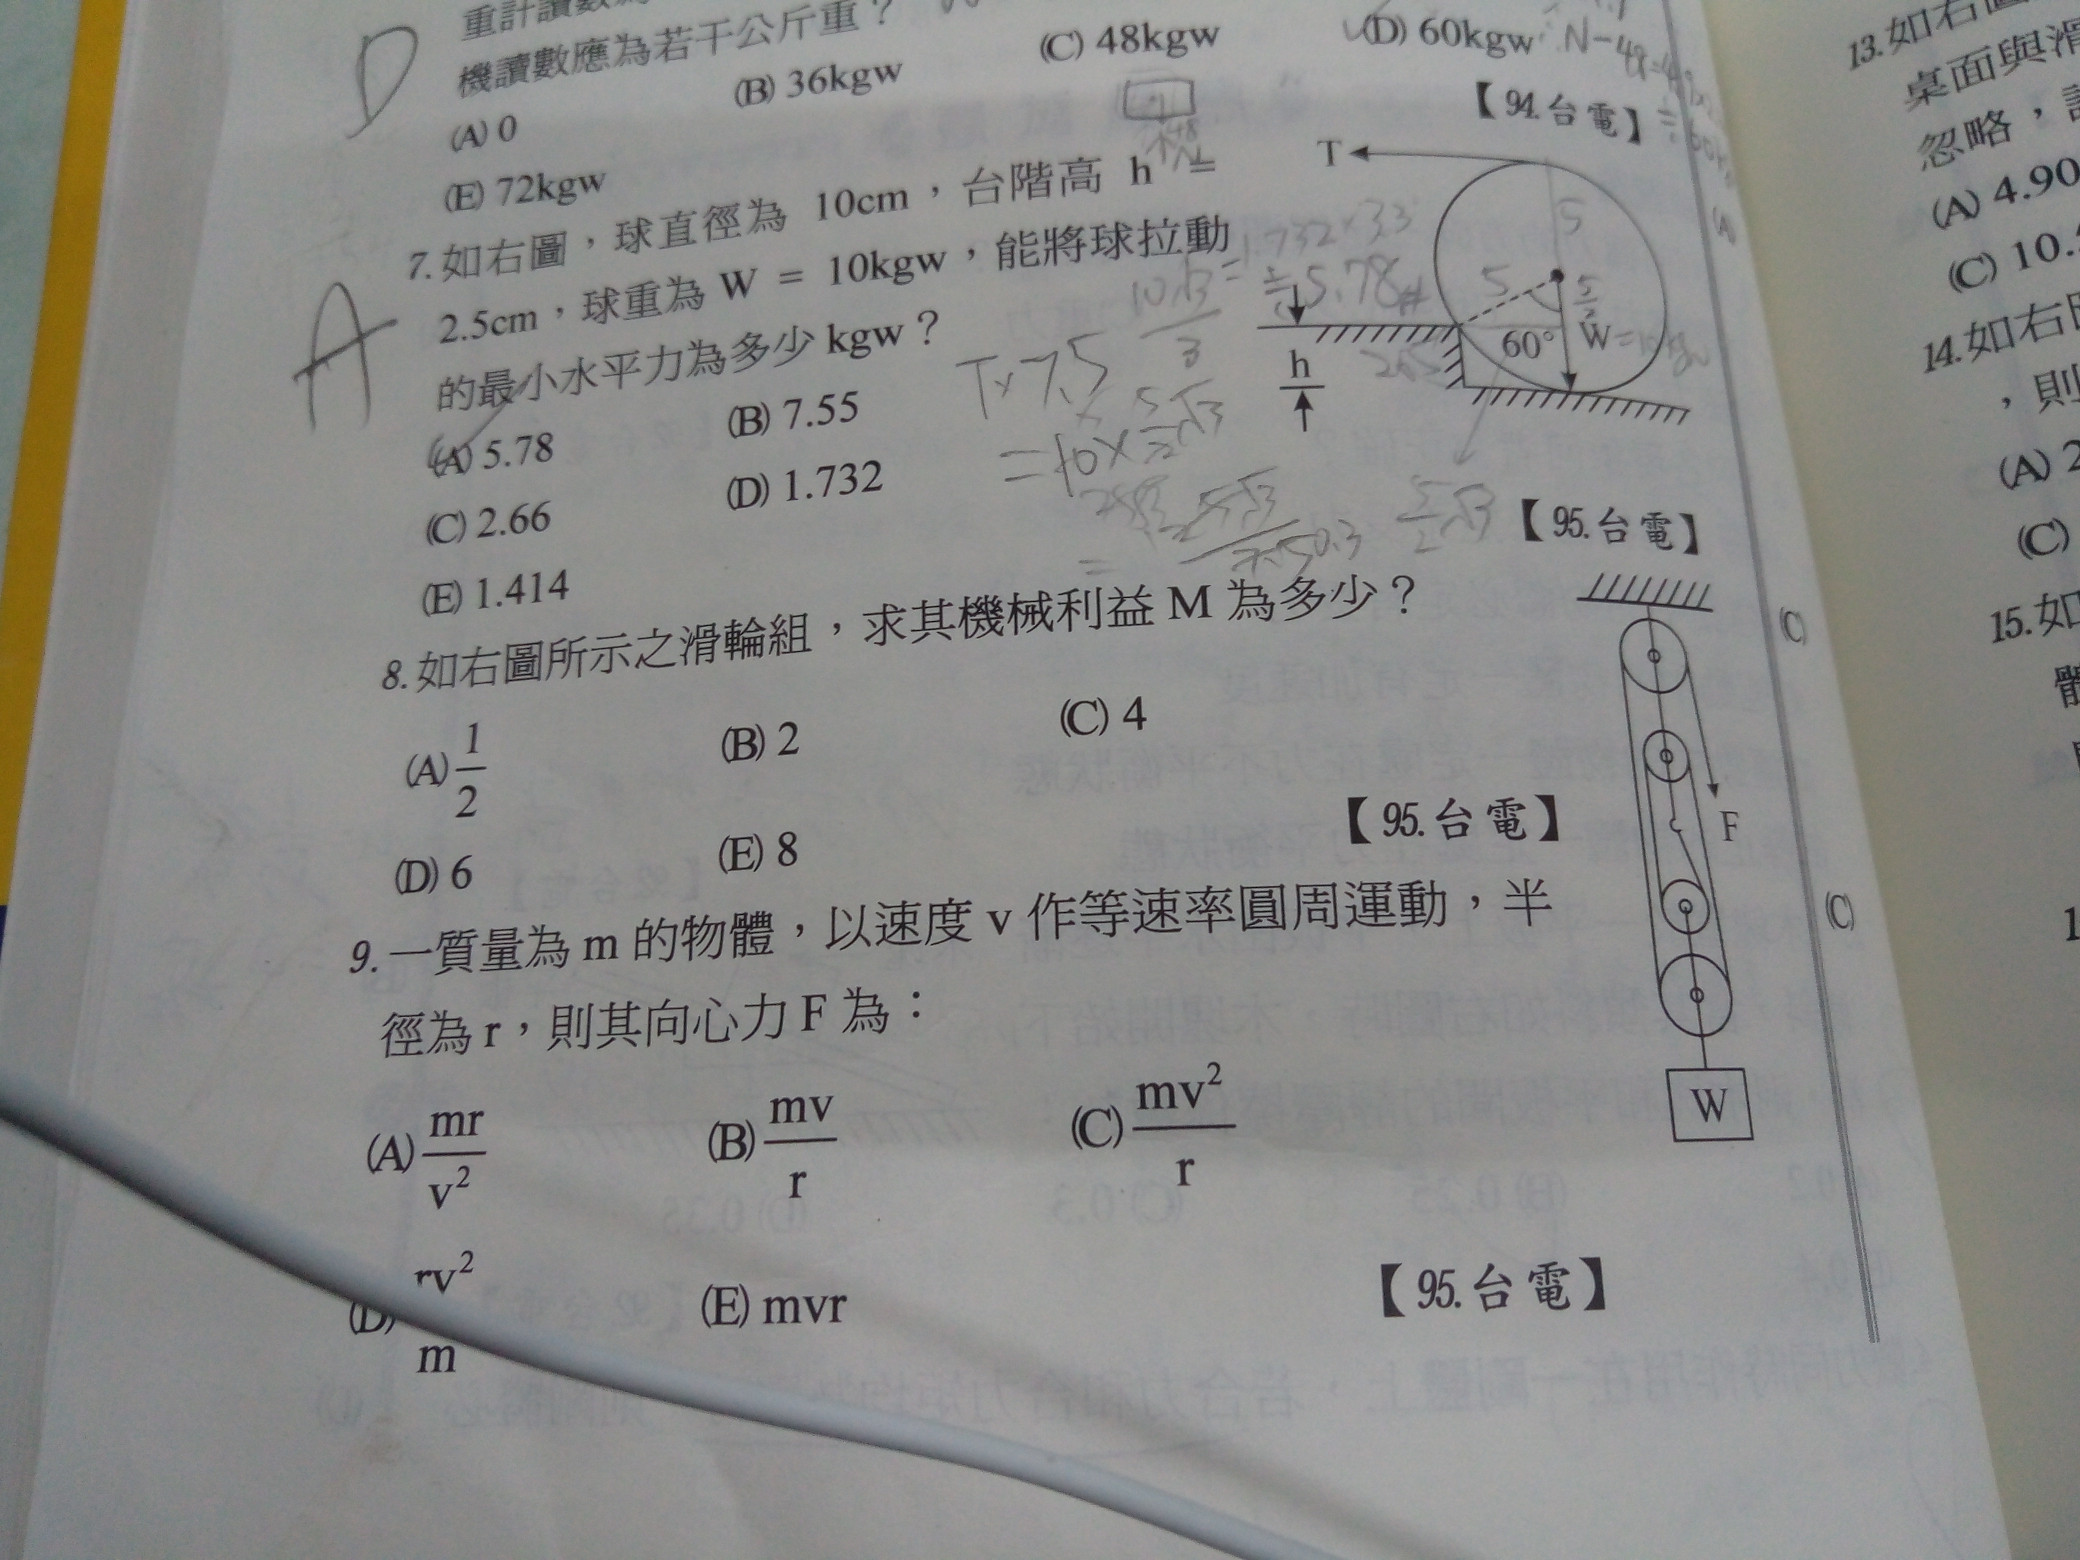 重計讀數為
機讀數應為若干公斤重？
(A) 0
(B) 36kgw
(C) 48kgw
(D) 60kgw
(E) 72kgw
【94.台電】
D
N-48=
7.如右圖，球直徑為 10cm，台階高 h =
2.5cm，球重為 W = 10kgw，能將球拉動
的最小水平力為多少 kgw？
A
(A) 5.78
(B) 7.55
(C) 2.66
(D) 1.732
(E) 1.414
【95.台電】
T
5
5
5/2
60°
W=10kgw
h
T×7.5
=10×5/2√3
10√3/3
=1.732×3.3
≒5.78#
5/2√3
8.如右圖所示之滑輪組，求其機械利益 M 為多少？
(A) 1/2
(B) 2
(C) 4
(D) 6
(E) 8
【95.台電】
F
W
9.一質量為 m 的物體，以速度 v 作等速率圓周運動，半
徑為 r，則其向心力 F 為：
(A) mr/v²
(B) mv/r
(C) mv²/r
(D) rv²/m
(E) mvr
【95.台電】
13.如右圖
桌面與滑
忽略，
(A) 4.90
(C) 10.
14.如右
，則
(A) 2
(C)
15.如
(A)
(C)
(C)